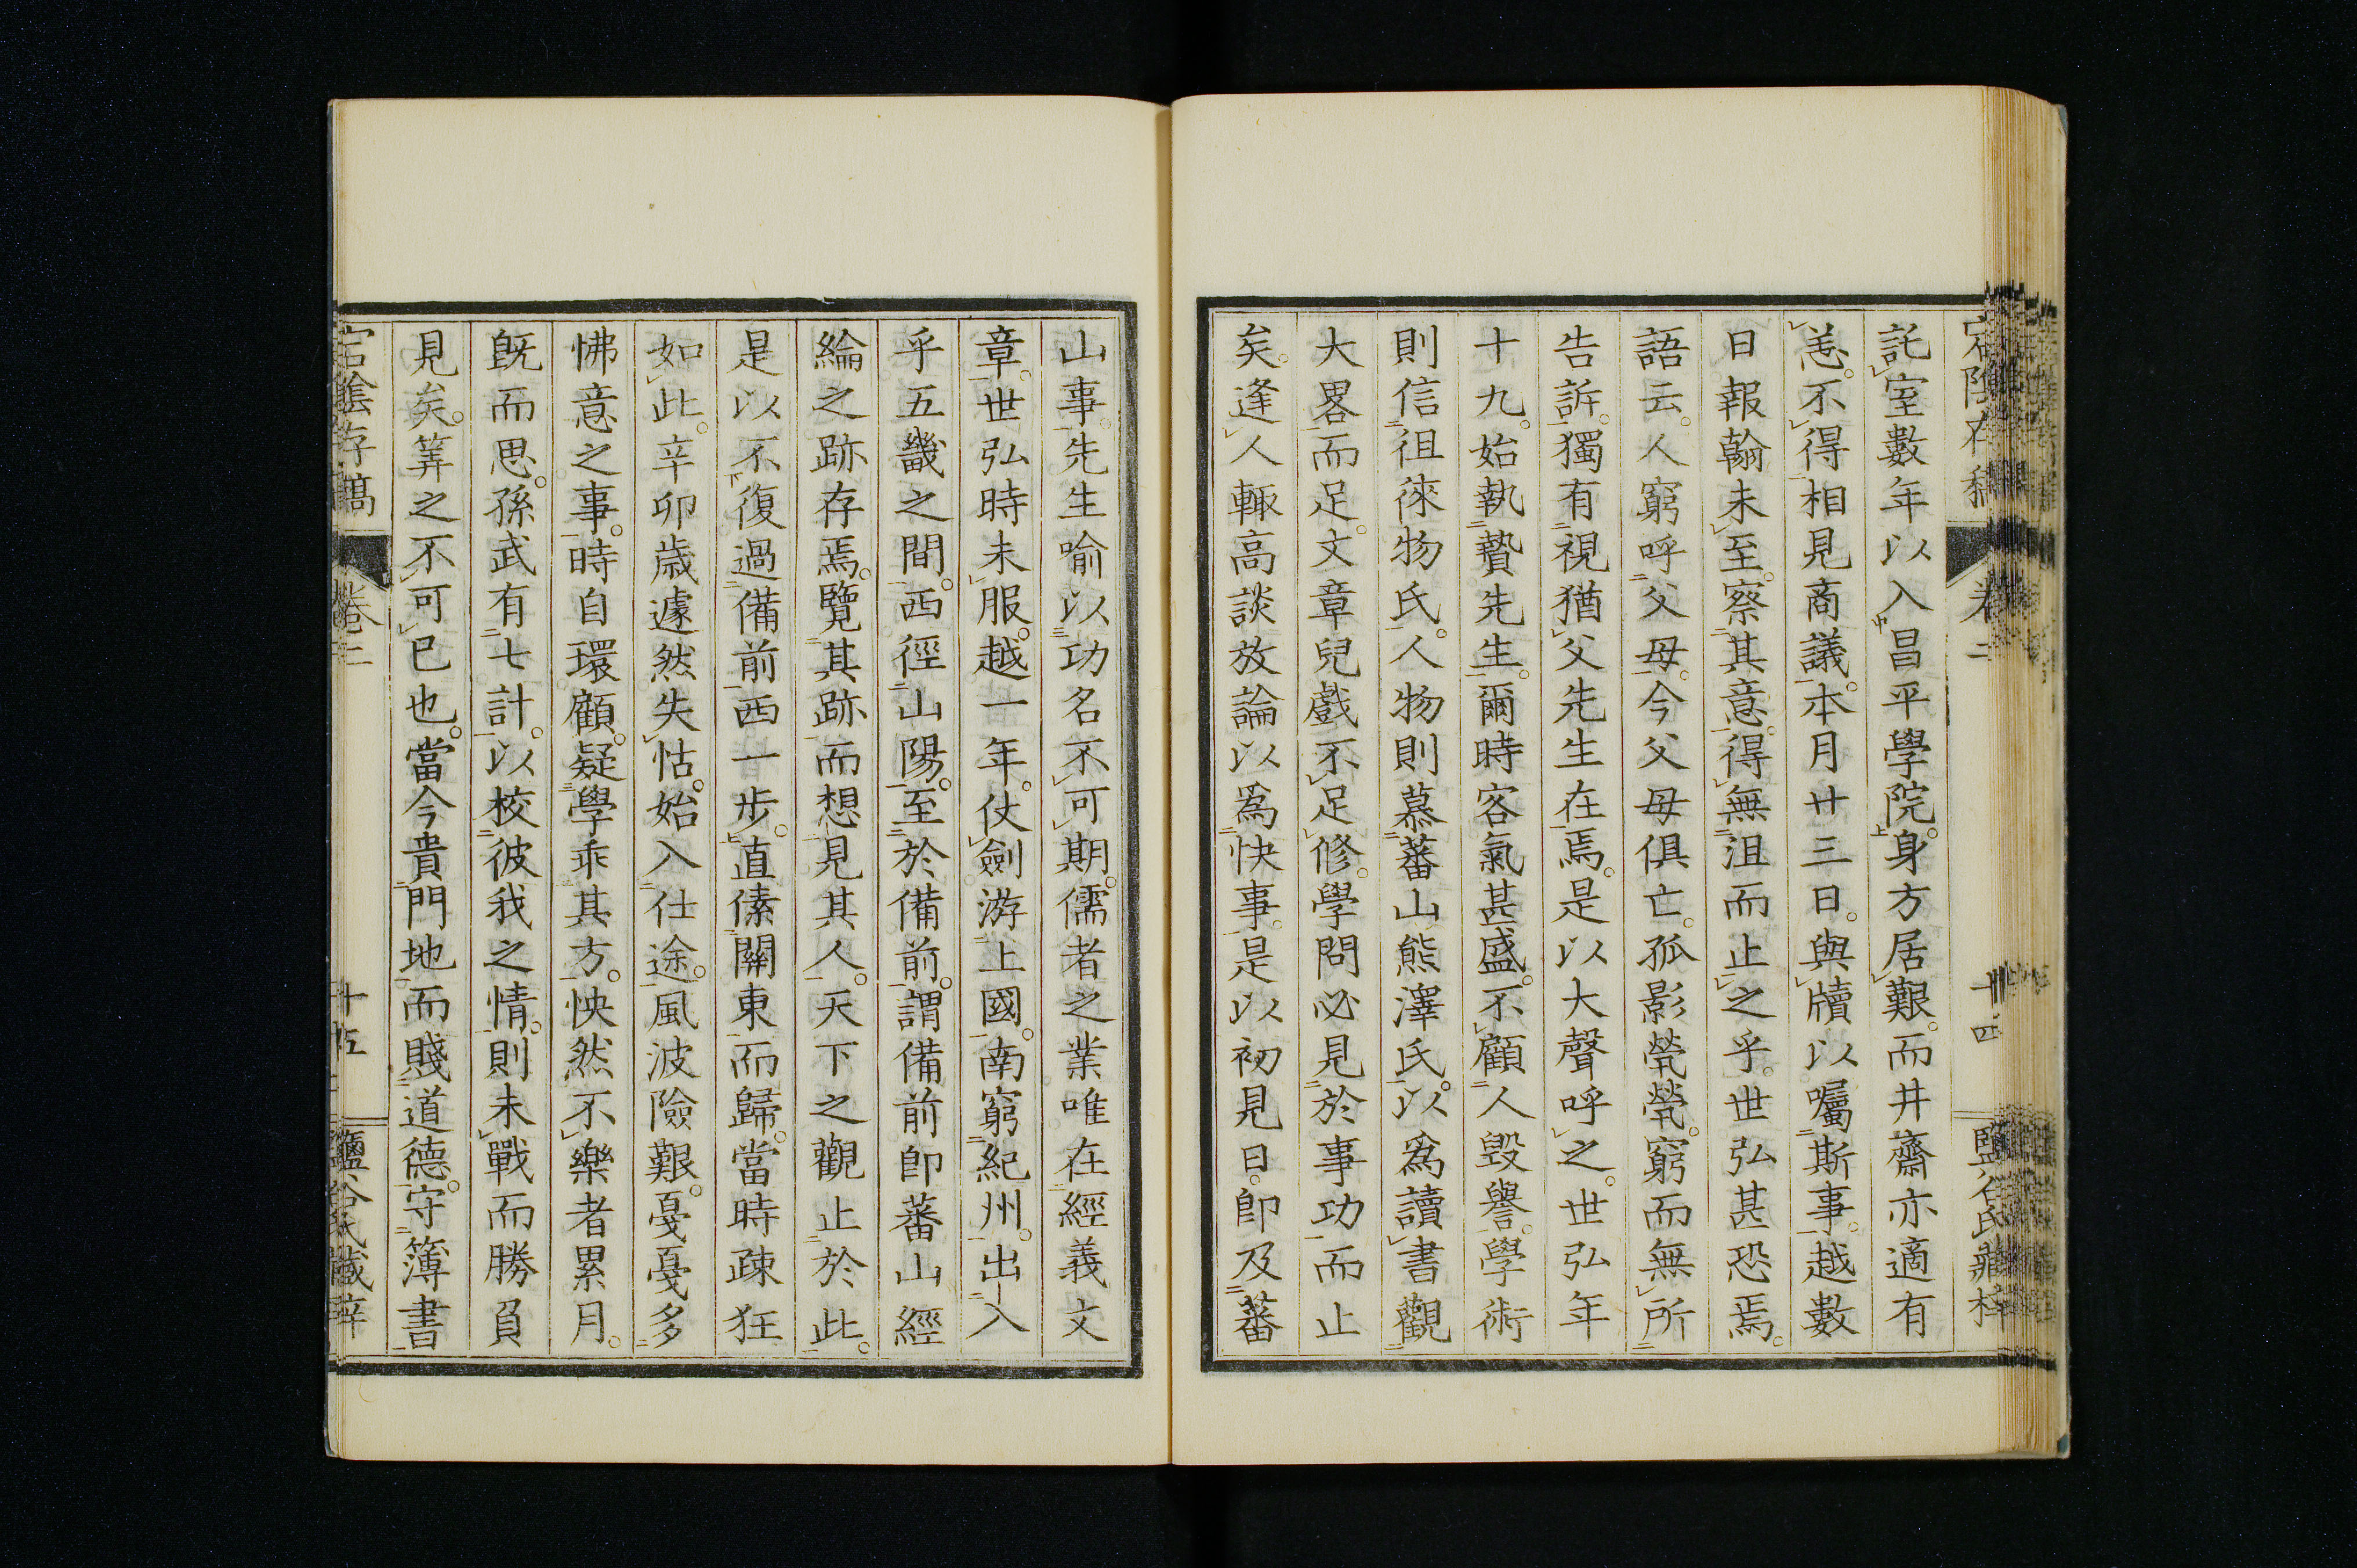 宕陰存稿 卷二 十四 鹽谷氏藏梓
託室數年以入昌平學院。身方居艱。而井齋亦適有
恙。不得相見商議。本月廿三日。與牘以囑斯事。越數
日報翰未至。察其意。得無沮而止之乎。世弘甚恐焉。
語云。人窮呼父母。今父母俱亡。孤影煢煢。窮而無所
告訴。獨有視猶父先生在焉。是以大聲呼之。世弘年
十九。始執贄先生。爾時客氣甚盛。不顧人毀譽。學術
則信徂徠物氏。人物則慕蕃山熊澤氏。以爲讀書觀
大畧而足。文章兒戲不足修。學問必見於事功而止
矣。逢人輒高談放論以爲快事。是以初見日。卽及蕃
山事。先生喻以功名不可期。儒者之業唯在經義文
章。世弘時未服。越一年。仗劍游上國。南窮紀州。出入
乎五畿之間。西徑山陽。至於備前。謂備前卽蕃山經
綸之跡存焉。覽其跡而想見其人。天下之觀止於此。
是以不復過備前西一步。直傃關東而歸。當時疎狂
如此。辛卯歲遽然失怙。始入仕途。風波險艱。戛戛多
怫意之事。時自環顧。疑學乖其方。怏然不樂者累月。
旣而思。孫武有七計。以校彼我之情。則未戰而勝負
見矣。筭之不可已也。當今貴門地而賤道德。守簿書
宕陰存稿 卷二 十五 鹽谷氏藏梓